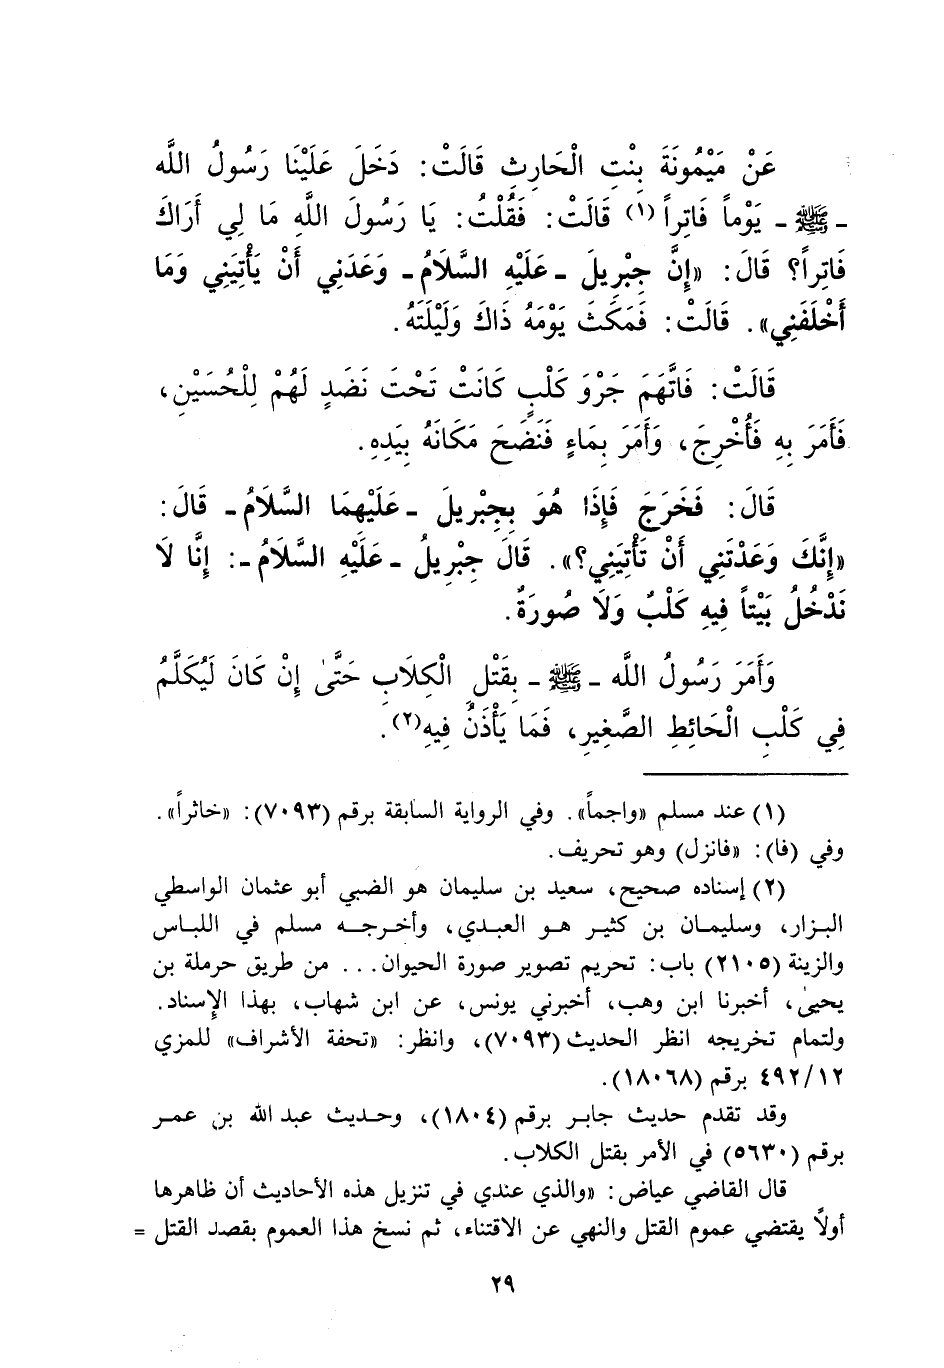 عَنْ مَيْمُونَةَ بِنْتِ الْحَارِثِ قَالَتْ: دَخَلَ عَلَيْنَا رَسُولُ اللَّه
ـ ﷺ ـ يَوْماً فَاتِراً (١) قَالَتْ: فَقُلْتُ: يَا رَسُولَ اللَّهِ مَا لِي أَرَاكَ
فَاتِراً؟ قَالَ: «إِنَّ جِبْرِيلَ ـ عَلَيْهِ السَّلَامُ ـ وَعَدَنِي أَنْ يَأْتِيَنِي وَمَا
أَخْلَفَنِي». قَالَتْ: فَمَكَثَ يَوْمَهُ ذَاكَ وَلَيْلَتَهُ.
قَالَتْ: فَاتَّهَمَ جَرْوَ كَلْبٍ كَانَتْ تَحْتَ نَضَدٍ لَهُمْ لِلْحُسَيْنِ،
فَأَمَرَ بِهِ فَأُخْرِجَ، وَأَمَرَ بِمَاءٍ فَنَضَحَ مَكَانَهُ بِيَدِهِ.
قَالَ: فَخَرَجَ فَإِذَا هُوَ بِجِبْرِيلَ ـ عَلَيْهِمَا السَّلَامُ ـ قَالَ:
«إِنَّكَ وَعَدْتَنِي أَنْ تَأْتِيَنِي؟». قَالَ جِبْرِيلُ ـ عَلَيْهِ السَّلَامُ ـ: إِنَّا لَا
نَدْخُلُ بَيْتاً فِيهِ كَلْبٌ وَلَا صُورَةٌ.
وَأَمَرَ رَسُولُ اللَّه ـ ﷺ ـ بِقَتْلِ الْكِلَابِ حَتَّىٰ إِنْ كَانَ لَيُكَلَّمُ
فِي كَلْبِ الْحَائِطِ الصَّغِيرِ، فَمَا يَأْذَنُ فِيهِ(٢).
(١) عند مسلم «واجماً». وفي الرواية السابقة برقم (٧٠٩٣): «خاثراً».
وفي (فا): «فانزل) وهو تحريف.
(٢) إسناده صحيح، سعيد بن سليمان هو الضبي أبو عثمان الواسطي
البزار، وسليمان بن كثير هو العبدي، وأخرجه مسلم في اللباس
والزينة (٢١٠٥) باب: تحريم تصوير صورة الحيوان... من طريق حرملة بن
يحيىٰ، أخبرنا ابن وهب، أخبرني يونس، عن ابن شهاب، بهذا الإسناد.
ولتمام تخريجه انظر الحديث (٧٠٩٣)، وانظر: «تحفة الأشراف» للمزي
٤٩٢/١٢ برقم (١٨٠٦٨).
وقد تقدم حديث جابر برقم (١٨٠٤)، وحديث عبد الله بن عمر
برقم (٥٦٣٠) في الأمر بقتل الكلاب.
قال القاضي عياض: «والذي عندي في تنزيل هذه الأحاديث أن ظاهرها
أولاً يقتضي عموم القتل والنهي عن الاقتناء، ثم نسخ هذا العموم بقصد القتل =
٢٩